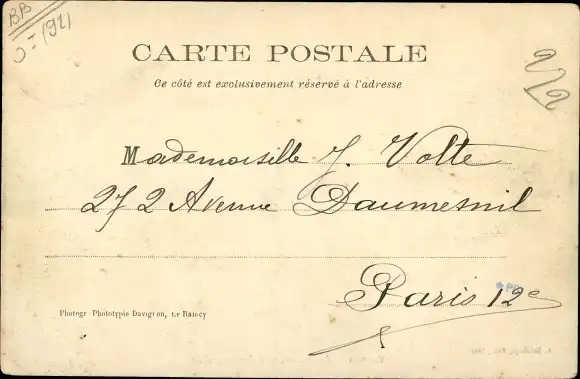 BB
(92)
CARTE POSTALE
Ce côté est exclusivement réservé à l'adresse
Mademoiselle J. Volte
272 Avenue Daumesnil
Paris 12e
Photogr-Phototypie Davignon, Le Raincy